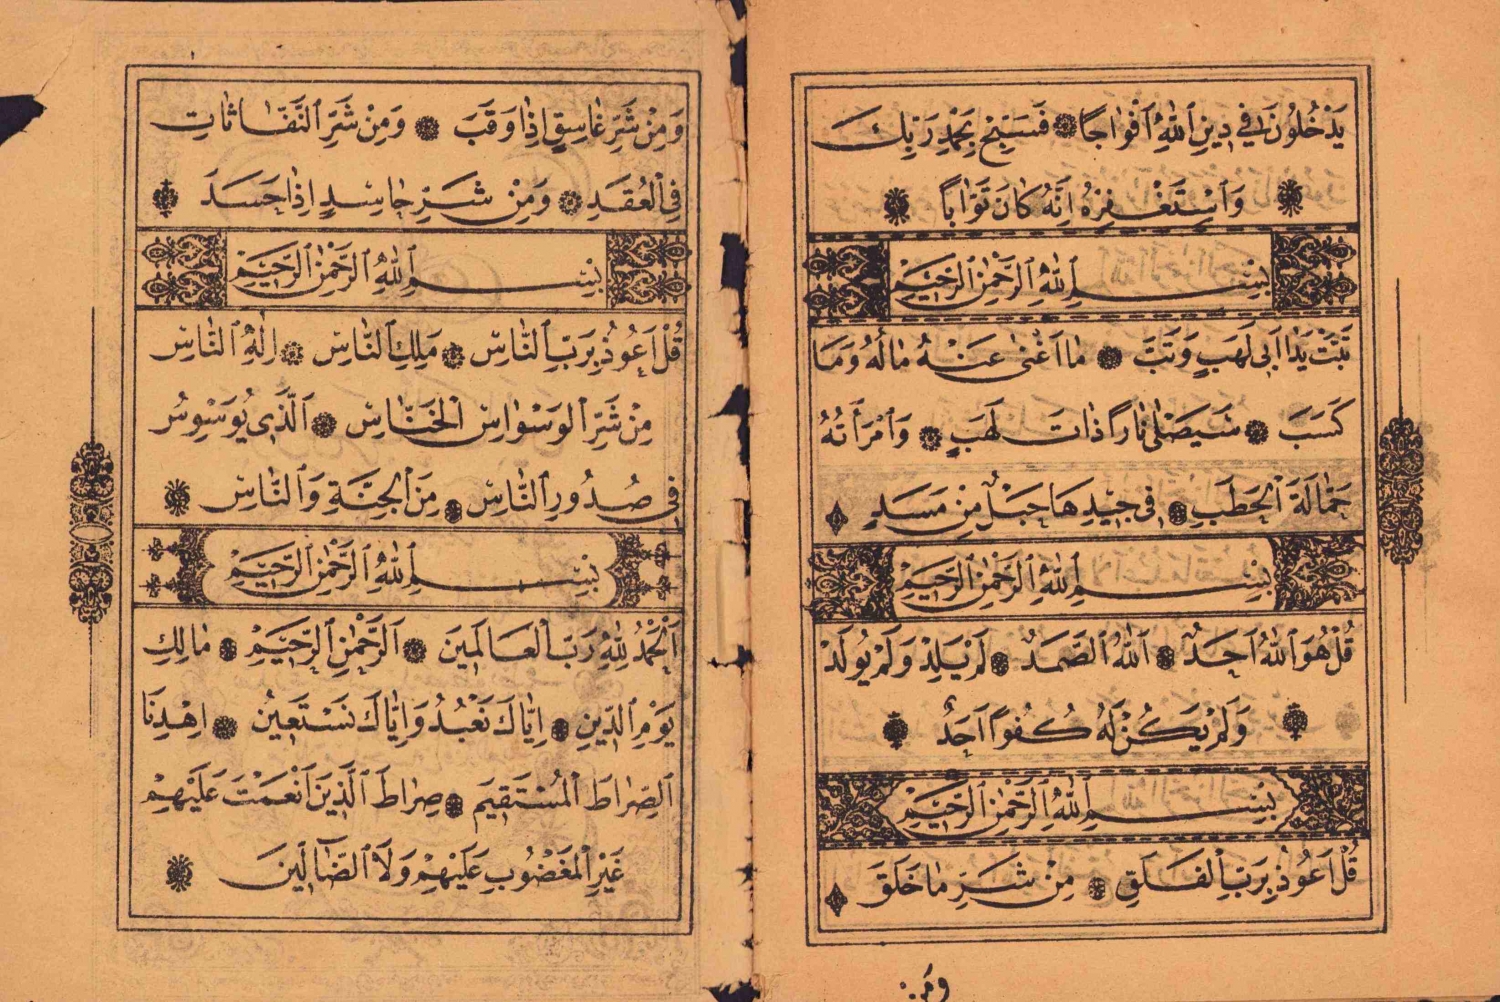 يَدْخُلُونَ فِي دِينِ ٱللّٰهِ اَفْوَاجًا فَسَبِّحْ بِحَمْدِ رَبِّكَ
وَٱسْتَغْفِرْهُ اِنَّهُ كَانَ تَوَّابًا
بِسْمِ ٱللّٰهِ ٱلرَّحْمٰنِ ٱلرَّحِيمِ
تَبَّتْ يَدَا اَبِي لَهَبٍ وَتَبَّ مَا اَغْنٰى عَنْهُ مَالُهُ وَمَا
كَسَبَ سَيَصْلٰى نَارًا ذَاتَ لَهَبٍ وَٱمْرَأَتُهُ
حَمَّالَةَ ٱلْحَطَبِ فِي جِيدِهَا حَبْلٌ مِنْ مَسَدٍ
بِسْمِ ٱللّٰهِ ٱلرَّحْمٰنِ ٱلرَّحِيمِ
قُلْ هُوَ ٱللّٰهُ اَحَدٌ ٱَللّٰهُ ٱلصَّمَدُ لَمْ يَلِدْ وَلَمْ يُولَدْ
وَلَمْ يَكُنْ لَهُ كُفُوًا اَحَدٌ
بِسْمِ ٱللّٰهِ ٱلرَّحْمٰنِ ٱلرَّحِيمِ
قُلْ اَعُوذُ بِرَبِّ ٱلْفَلَقِ مِنْ شَرِّ مَا خَلَقَ
وَمِنْ
وَمِنْ شَرِّ غَاسِقٍ اِذَا وَقَبَ وَمِنْ شَرِّ ٱلنَّفَّاثَاتِ
فِي ٱلْعُقَدِ وَمِنْ شَرِّ حَاسِدٍ اِذَا حَسَدَ
بِسْمِ ٱللّٰهِ ٱلرَّحْمٰنِ ٱلرَّحِيمِ
قُلْ اَعُوذُ بِرَبِّ ٱلنَّاسِ مَلِكِ ٱلنَّاسِ اِلٰهِ ٱلنَّاسِ
مِنْ شَرِّ ٱلْوَسْوَاسِ ٱلْخَنَّاسِ ٱَلَّذِي يُوَسْوِسُ
فِي صُدُورِ ٱلنَّاسِ مِنَ ٱلْجِنَّةِ وَٱلنَّاسِ
بِسْمِ ٱللّٰهِ ٱلرَّحْمٰنِ ٱلرَّحِيمِ
اَلْحَمْدُ لِلّٰهِ رَبِّ ٱلْعَالَمِينَ اَلرَّحْمٰنِ ٱلرَّحِيمِ مَالِكِ
يَوْمِ ٱلدِّينِ اِيَّاكَ نَعْبُدُ وَاِيَّاكَ نَسْتَعِينُ اِهْدِنَا
ٱلصِّرَاطَ ٱلْمُسْتَقِيمَ صِرَاطَ ٱلَّذِينَ اَنْعَمْتَ عَلَيْهِمْ
غَيْرِ ٱلْمَغْضُوبِ عَلَيْهِمْ وَلَا ٱلضَّآلِّينَ